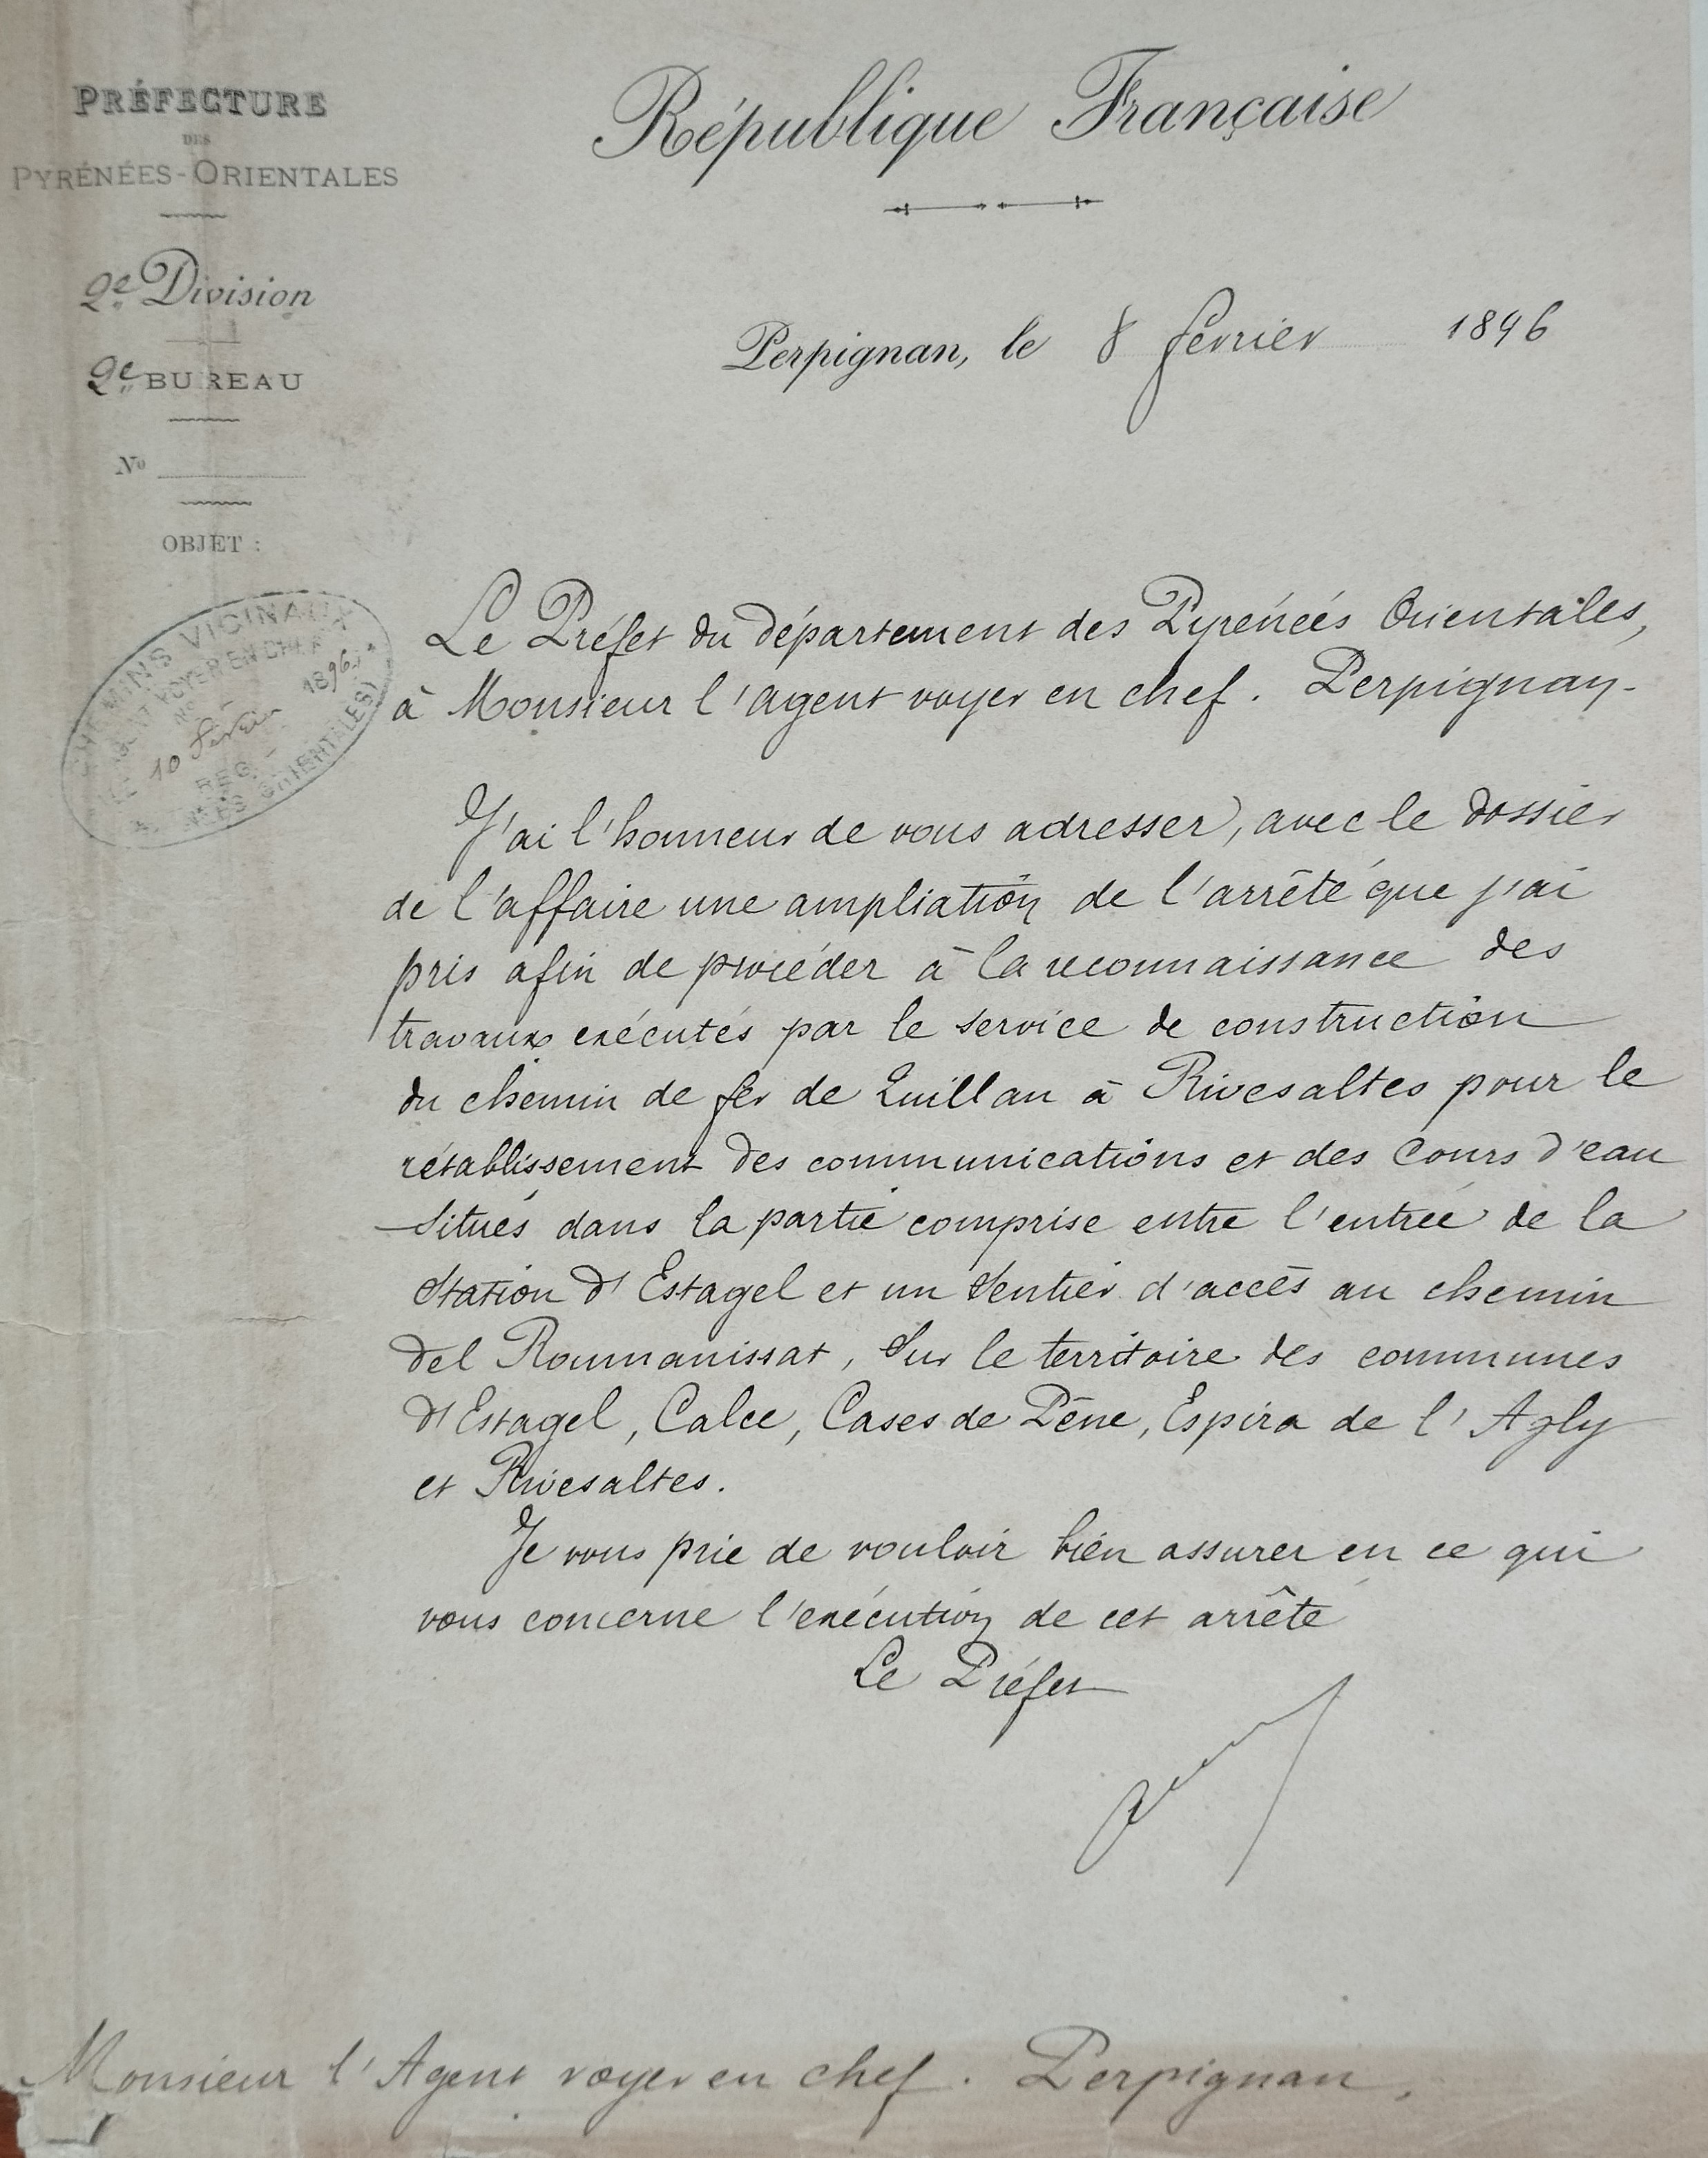 PRÉFECTURE
DES
PYRÉNÉES-ORIENTALES
2e Division
2e BUREAU
No
OBJET :
République Française
Perpignan, le 8 février 1896
CHEMINS VICINAUX
AGENT VOYER EN CHEF
No
10 Février 1896
REG.
ORIENTALES)
Le Préfet du département des Pyrénées Orientales,
à Monsieur l'agent voyer en chef. Perpignan.
J'ai l'honneur de vous adresser, avec le dossier
de l'affaire une ampliation de l'arrêté que j'ai
pris afin de procéder à la reconnaissance des
travaux exécutés par le service de construction
du chemin de fer de Quillan à Rivesaltes pour le
rétablissement des communications et des cours d'eau
situés dans la partie comprise entre l'entrée de la
Station d'Estagel et un sentier d'accès au chemin
del Roumanissat, sur le territoire des communes
d'Estagel, Calce, Cases de Pène, Espira de l'Agly
et Rivesaltes.
Je vous prie de vouloir bien assurer en ce qui
vous concerne l'exécution de cet arrêté
Le Préfet
Monsieur l'Agent voyer en chef. Perpignan.